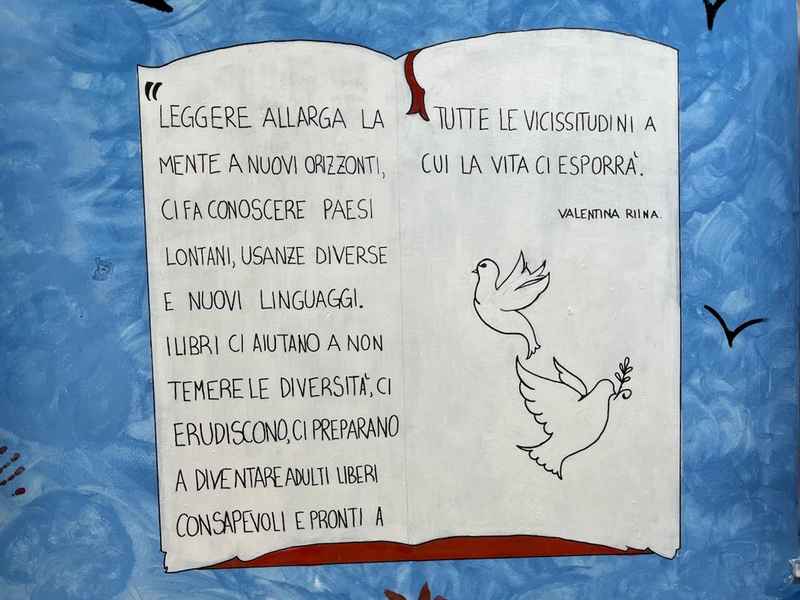 "LEGGERE ALLARGA LA
MENTE A NUOVI ORIZZONTI,
CI FA CONOSCERE PAESI
LONTANI, USANZE DIVERSE
E NUOVI LINGUAGGI.
I LIBRI CI AIUTANO A NON
TEMERE LE DIVERSITÀ, CI
ERUDISCONO, CI PREPARANO
A DIVENTARE ADULTI LIBERI
CONSAPEVOLI E PRONTI A
TUTTE LE VICISSITUDINI A
CUI LA VITA CI ESPORRÀ.
VALENTINA RIINA.